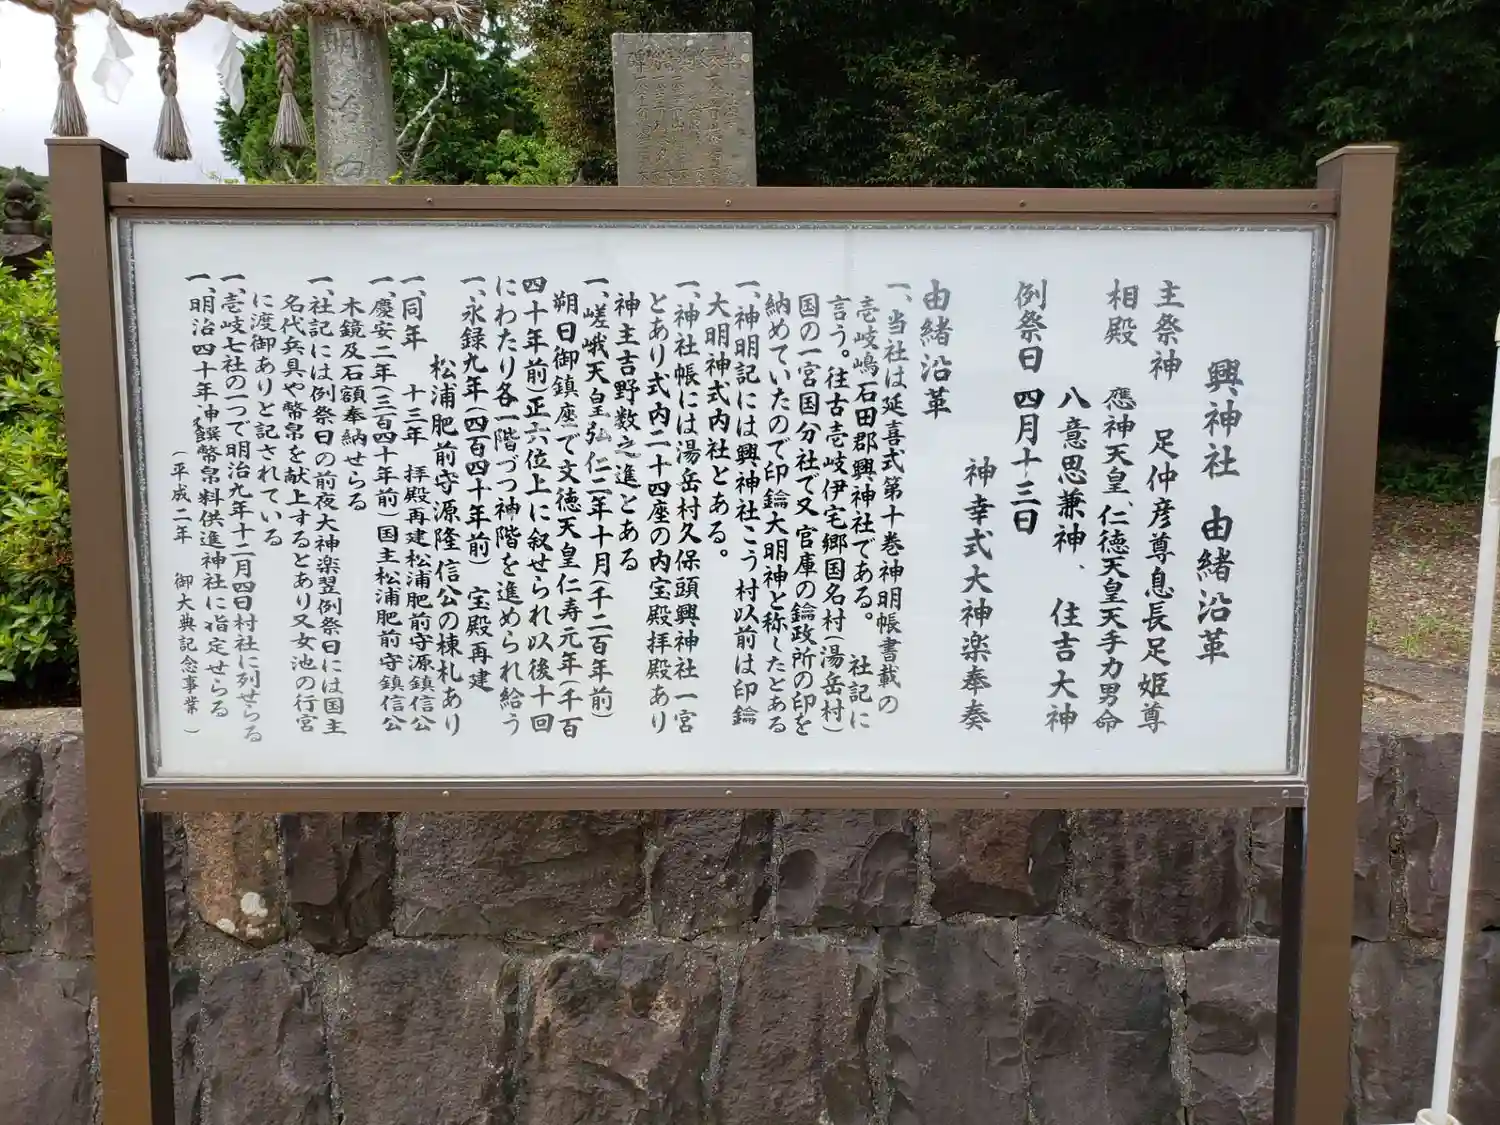 興神社 由緒沿革
主祭神 足仲彦尊息長足姫尊
相殿 應神天皇、仁徳天皇天手力男命
八意思兼神、 住吉大神
例祭日 四月十三日
神幸式大神楽奉奏
由緒沿革
一、当社は延喜式第十巻神明帳書載の
壱岐嶋石田郡興神社である。 社記に
言う。往古壱岐伊宅郷国名村(湯岳村)
国の一宮国分社で又官庫の鑰政所の印を
納めていたので印鑰大明神と称したとある
一、神明記には興神社こう村以前は印鑰
大明神式内社とある。
一、神社帳には湯岳村久保頭興神社一宮
とあり式内二十四座の内宝殿拝殿あり
神主吉野数之進とある
一、嵯峨天皇弘仁二年十月(千二百年前)
朔日御鎮座で文徳天皇仁寿元年(千百
四十年前正六位上に叙せられ以後十回
にわたり各一階づつ神階を進められ給う
一、永録九年(四百四十年前) 宝殿再建
松浦肥前守源隆信公の棟札あり
一、同年 十三年 拝殿再建松浦肥前守源鎮信公
一、慶安二年(三百四十年前)国主松浦肥前守鎮信公
木鏡及石額奉納せらる
一、社記には例祭日の前夜大神楽翌例祭日には国主
名代兵具や幣帛を献上するとあり又女池の行宮
に渡御ありと記されている
一、壱岐七社の一つで明治九年十二月四日村社に列せらる
一、明治四十年神饌幣帛料供進神社に指定せらる
(平成二年 御大典記念事業)